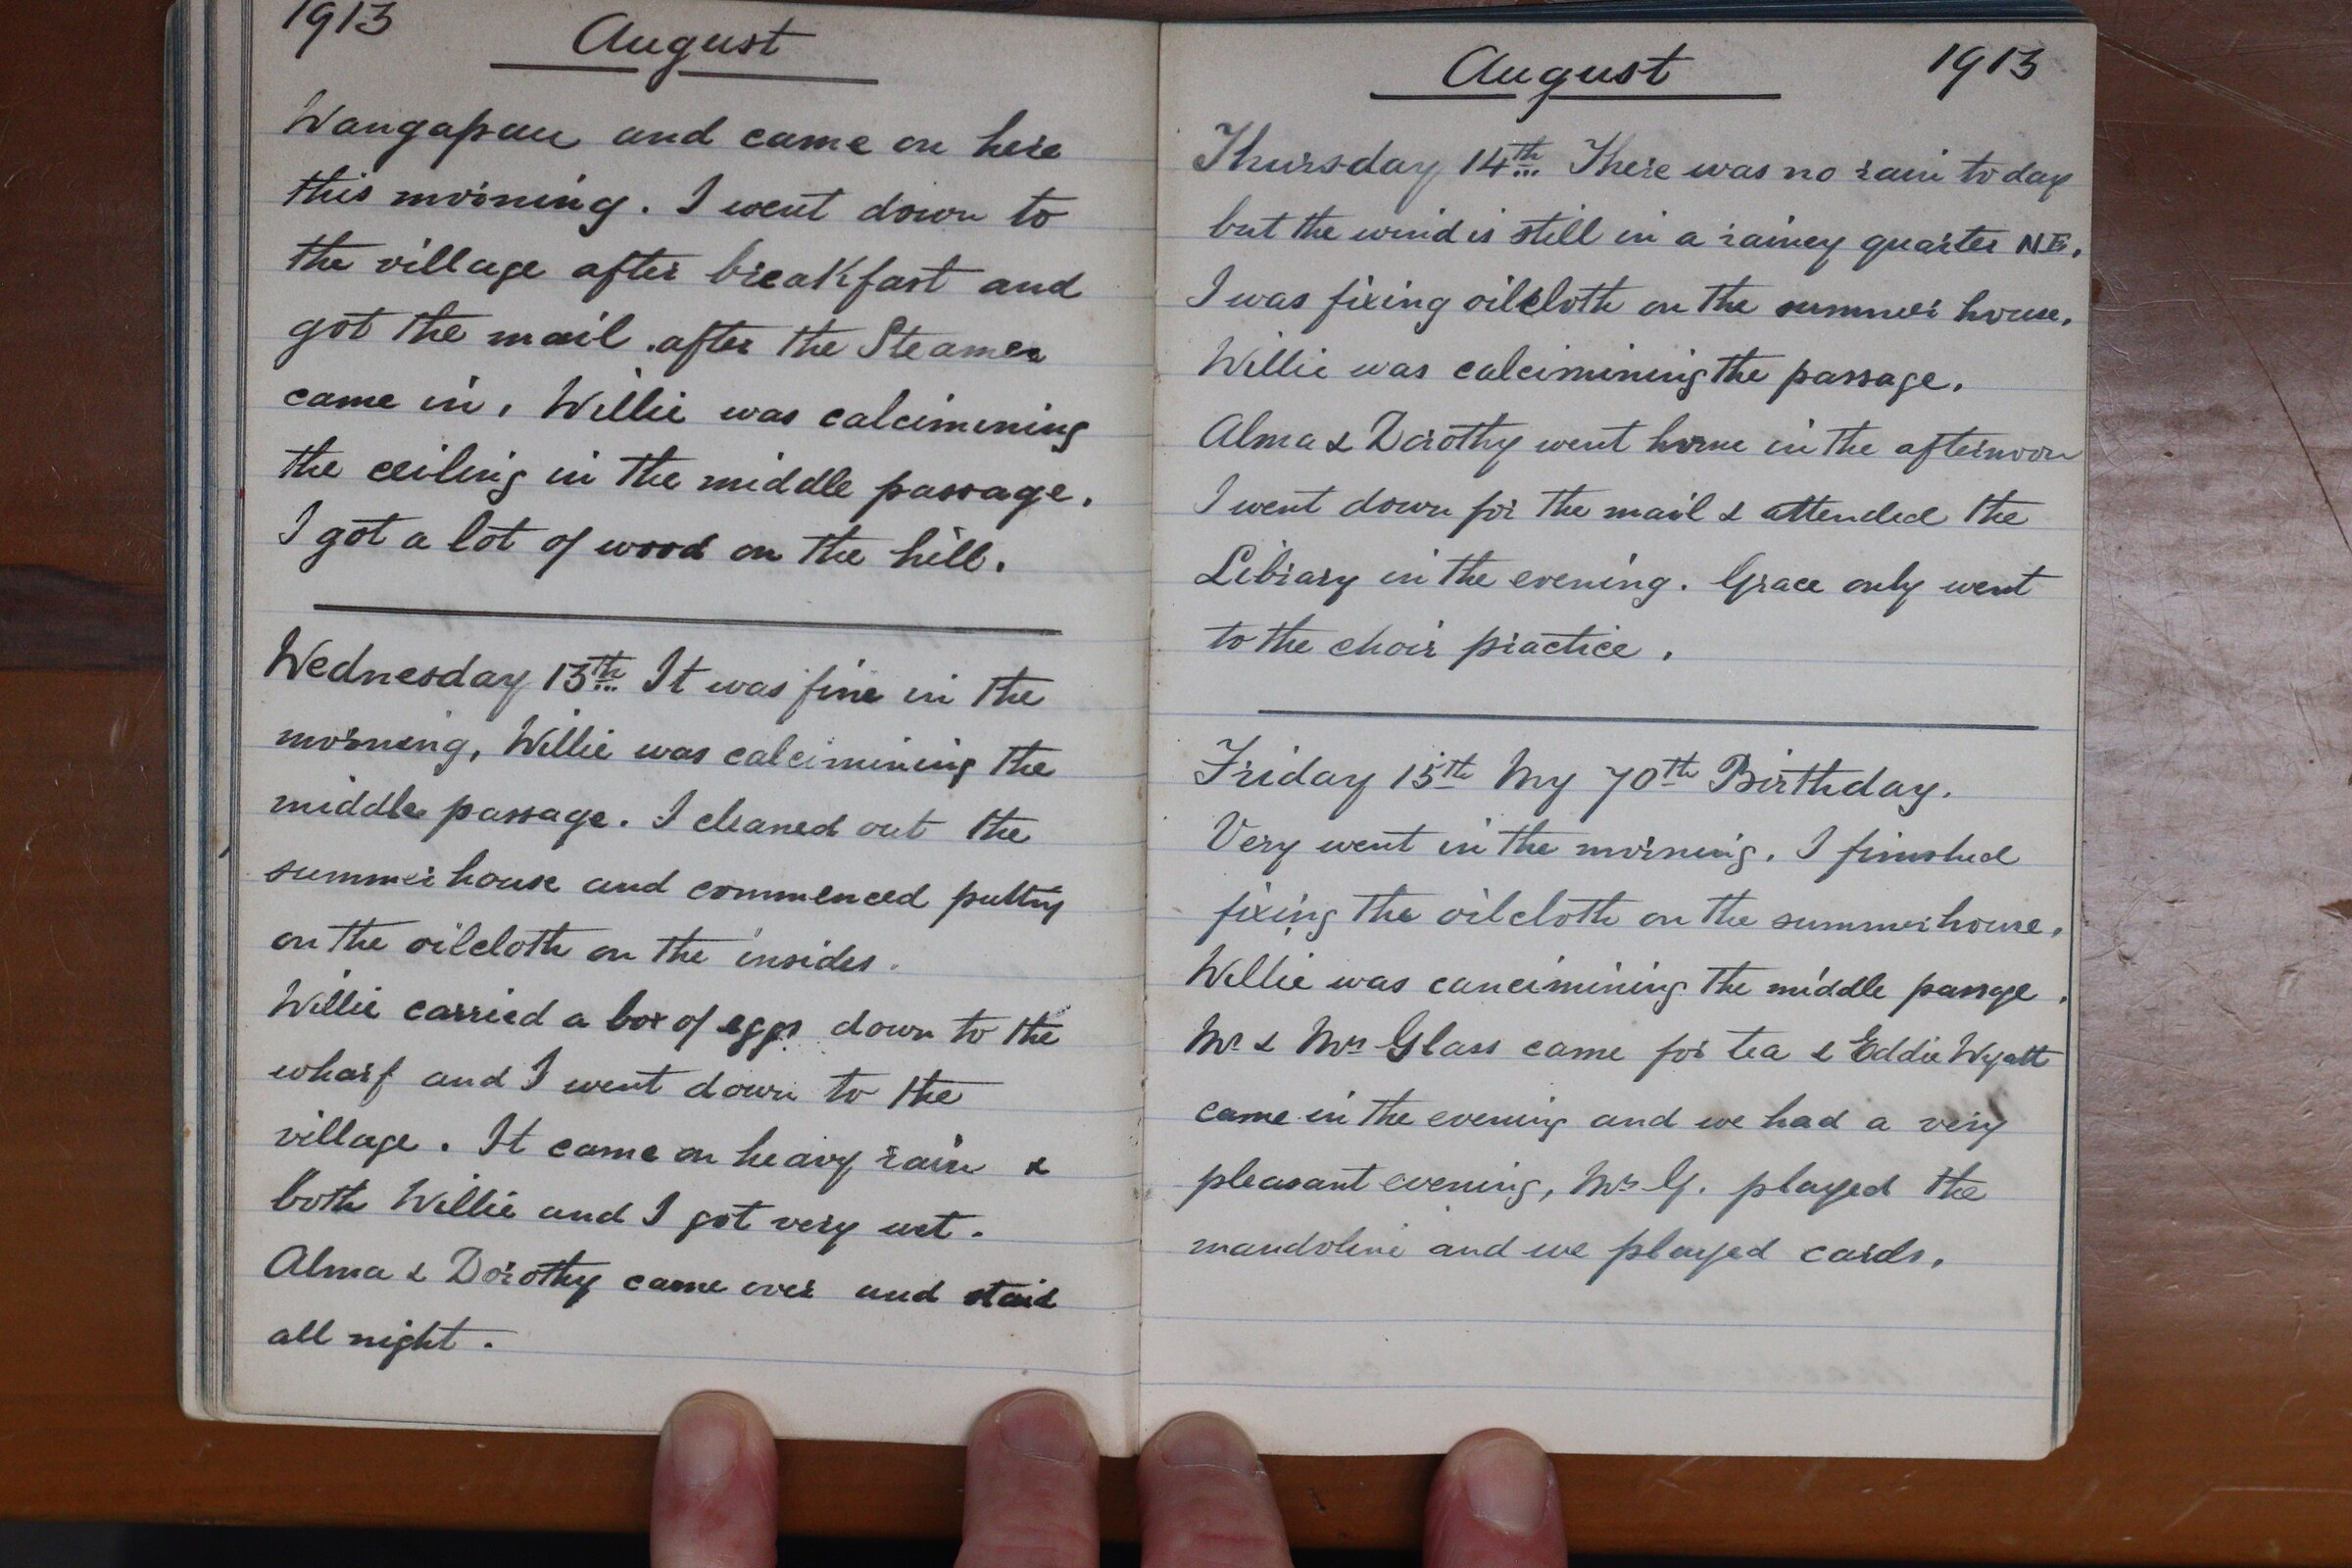 1913 August
Wangapau and came on here
this morning. I went down to
the village after breakfast and
got the mail after the Steamer
came in, Willie was calcimining
the ceiling in the middle passage.
I got a lot of wood on the hill.
Wednesday 13th It was fine in the
morning, Willie was calcimining the
middle passage. I cleaned out the
summer house and commenced putting
on the oilcloth on the insides.
Willie carried a box of eggs down to the
wharf and I went down to the
village. It came on heavy rain &
both Willie and I got very wet.
Alma & Dorothy came over and staid
all night.
August 1913
Thursday 14th There was no rain today
but the wind is still in a rainey quarter NE.
I was fixing oilcloth on the summer house.
Willie was calcimining the passage.
Alma & Dorothy went home in the afternoon
I went down for the mail & attended the
Library in the evening. Grace only went
to the choir practice.
Friday 15th My 70th Birthday.
Very went in the morning. I finished
fixing the oilcloth on the summer house.
Willie was cancimining the middle passage.
Mr & Mrs Glass came for tea & Eddie Wyatt
came in the evening and we had a very
pleasant evening, Mrs G. played the
mandoline and we played cards.